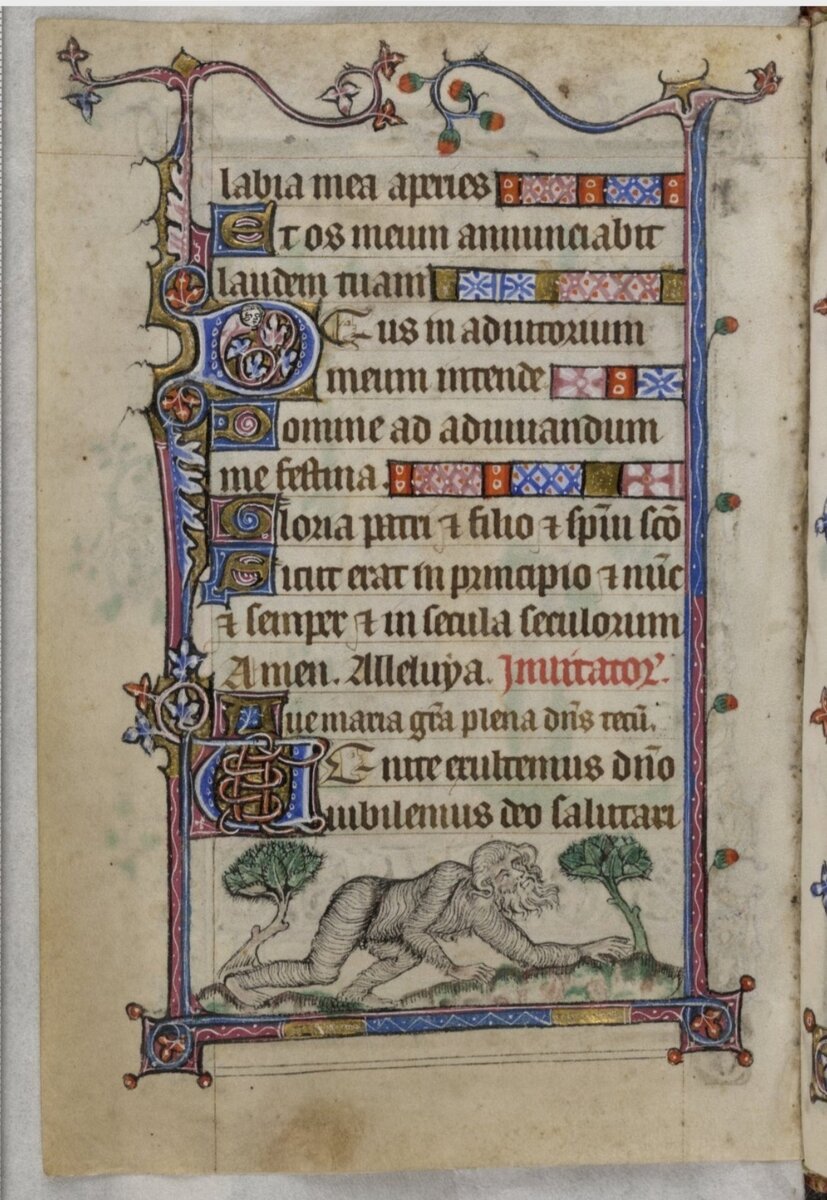 labia mea aperies
Et os meum annunciabit
laudem tuam
Deus in adiutorium
meum intende
Domine ad adiuuandum
me festina.
Gloria patri ⁊ filio ⁊ sp̄iu sc̄o
Sicut erat in principio ⁊ nūc
⁊ semper ⁊ in secula seculorum
Amen. Alleluya. Inuitator̛.
Aue maria gr̄a plena dn̄s tecū.
Uenite exultemus dn̄o
iubilemus deo salutari